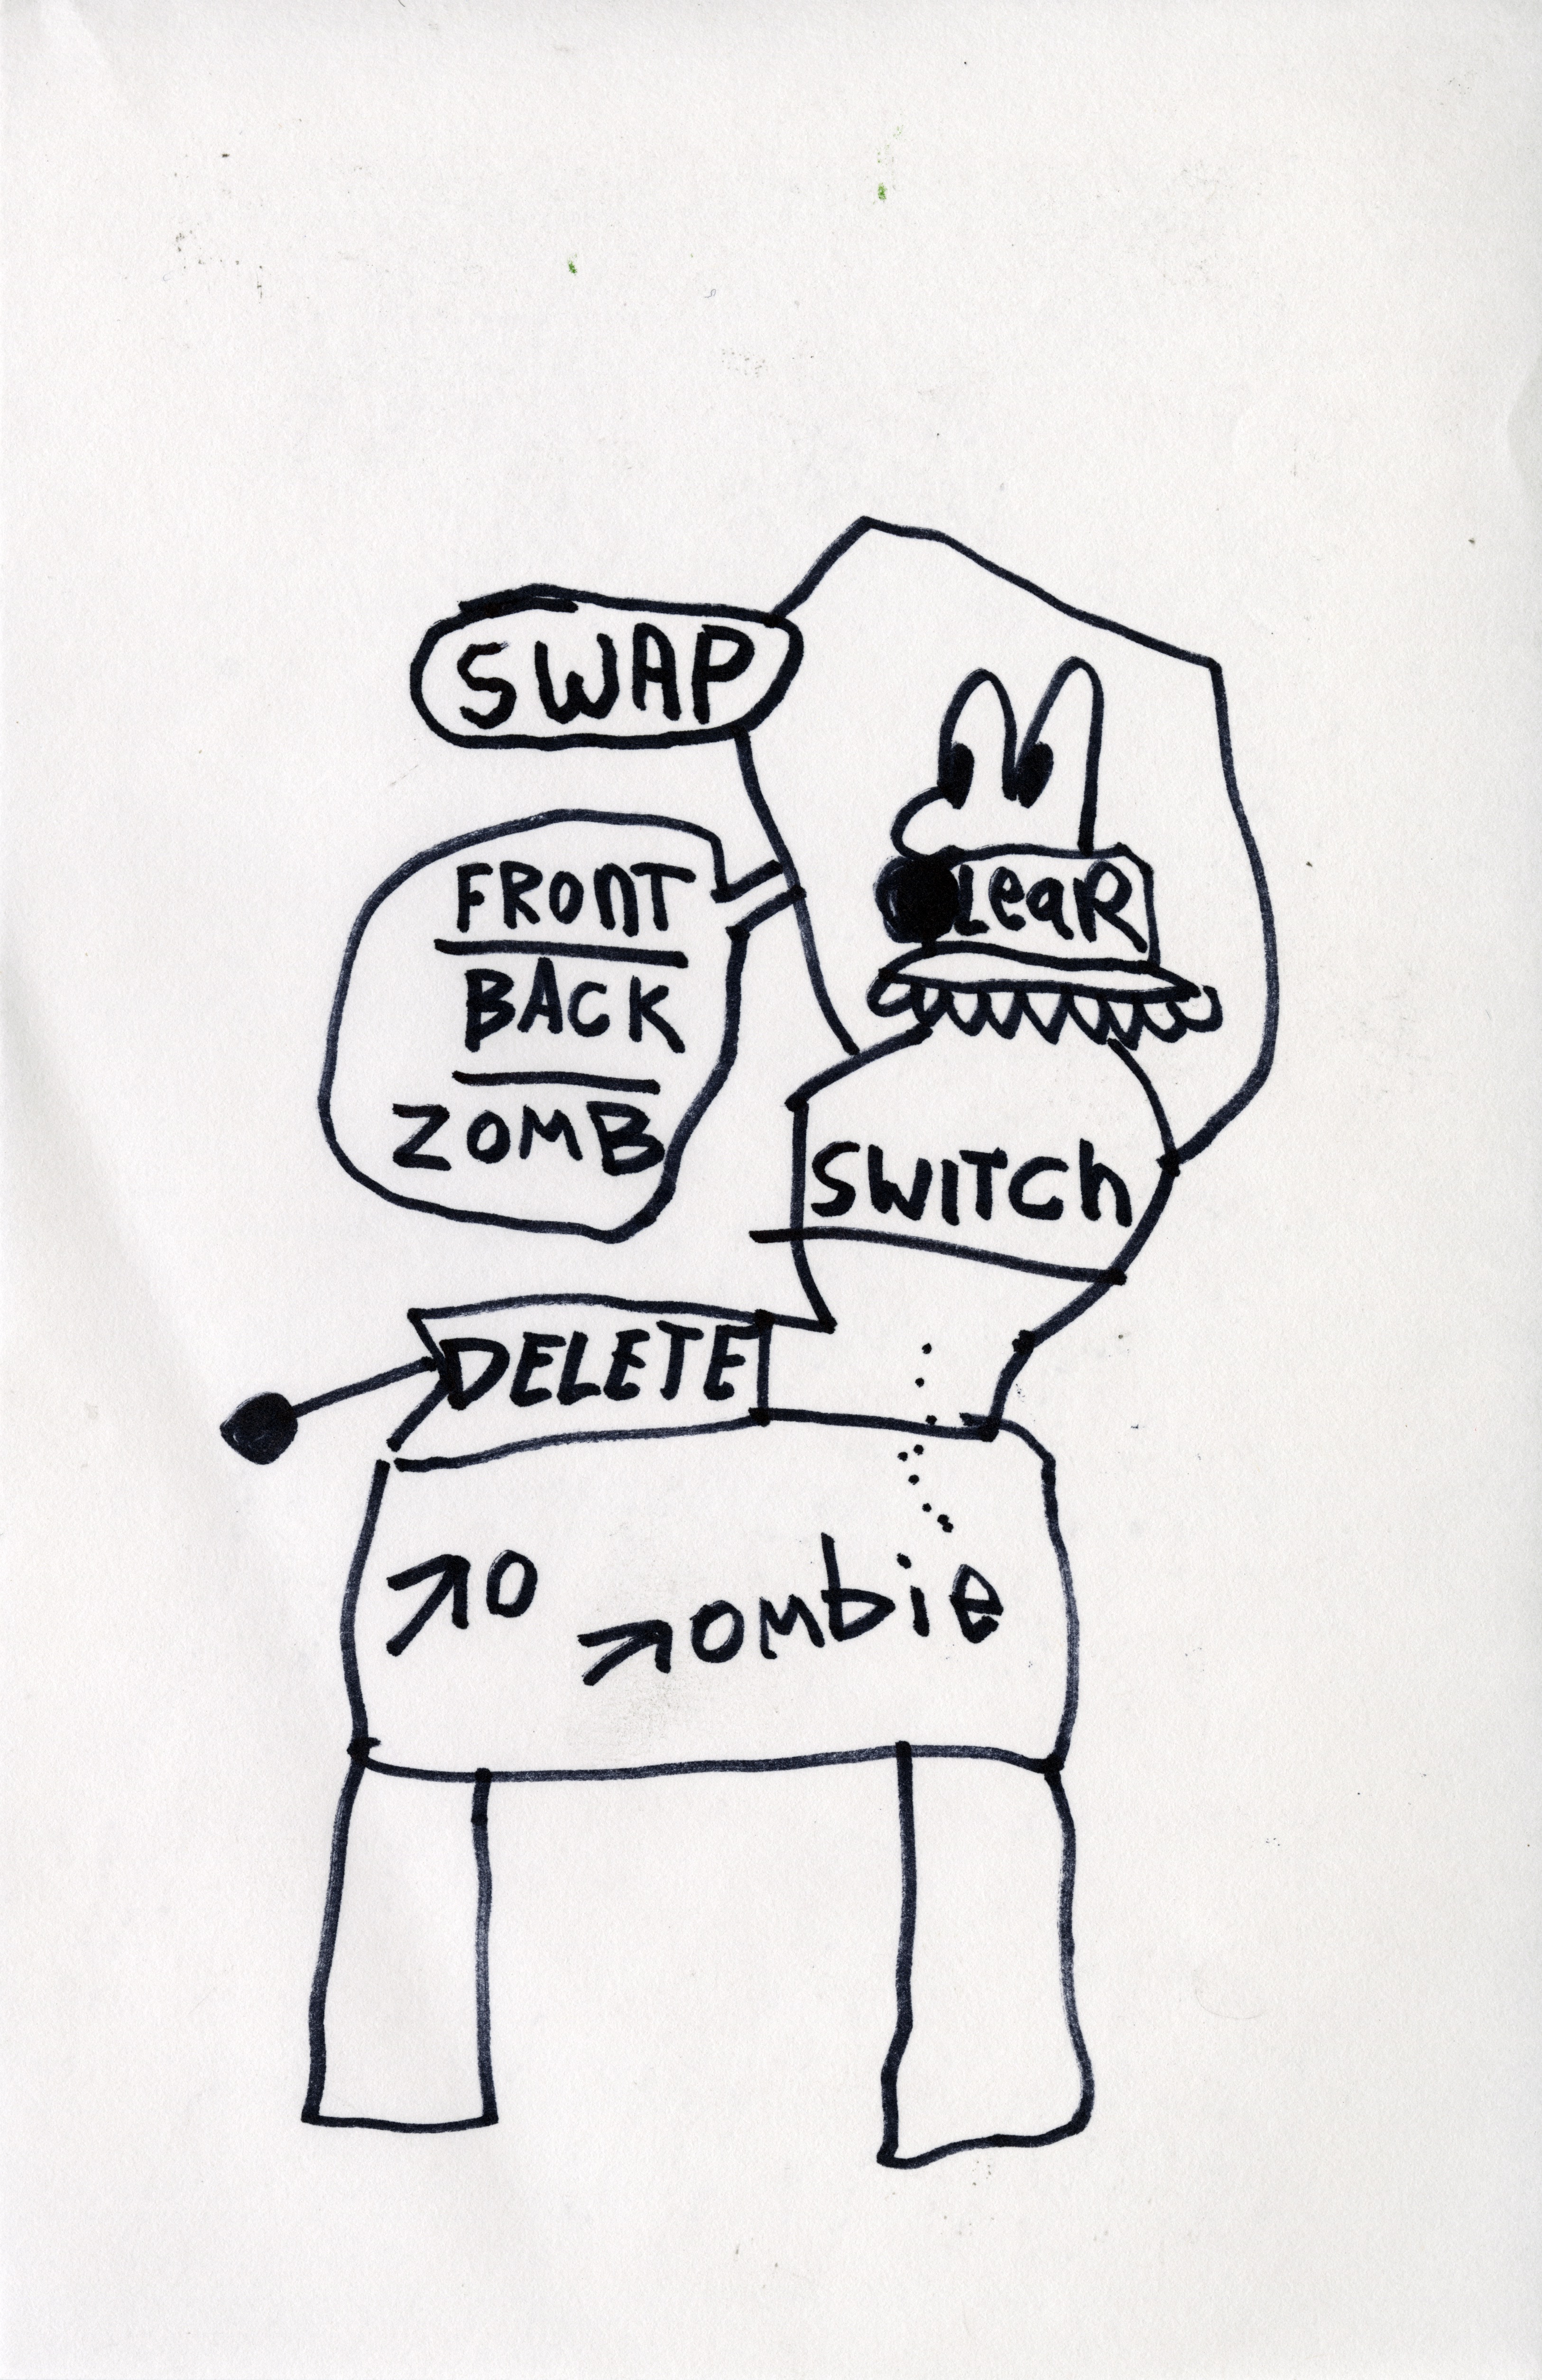 SWAP
LeaR
FROnT
BACK
ZOMB
SWITCh
DELETE
↗o ↗ombie